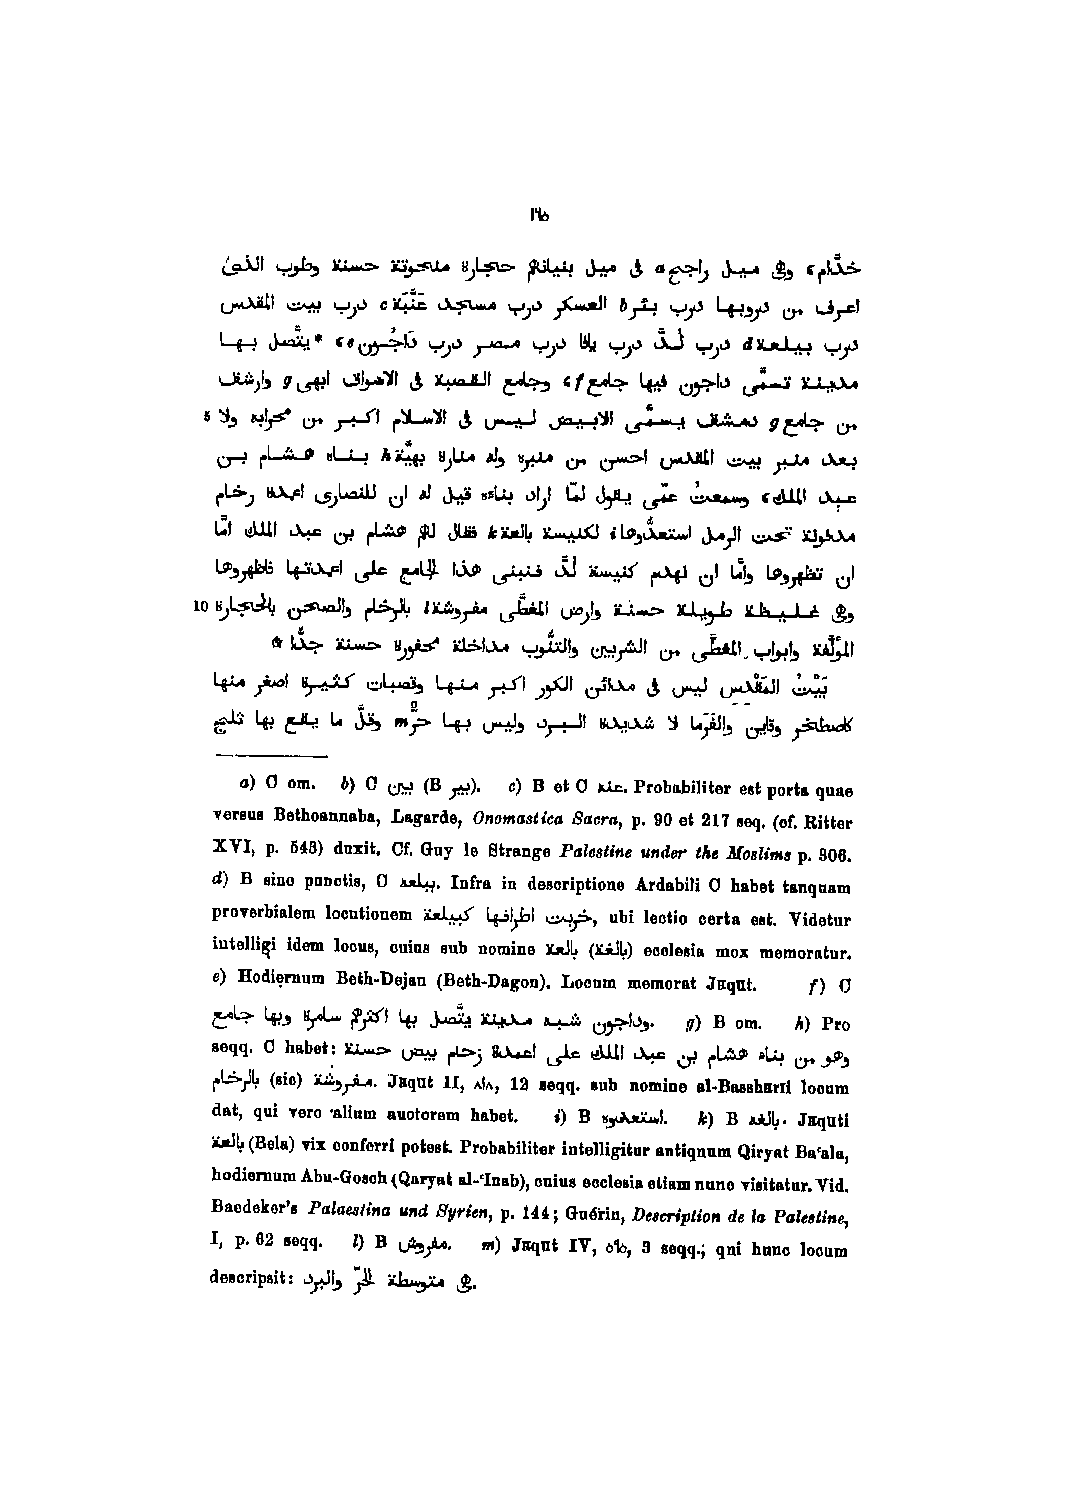 ١٦٥
خدّام، وهى ميل راجح a فى ميل بنيانهم حجارة منحوتة حسنة وطوب الذى
اعرف من دروبها درب بئر b العسكر درب مسجد عَنَّبَة c درب بيت المقدس
درب بيلعة d درب لُدّ درب يافا درب مصر درب داجُون e، * يتّصل بها
مدينة تسمّى داجون فيها جامع f، وجامع القصبة فى الاسواق ابهى g وارشق
من جامع g دمشق يسمّى الابيض ليس فى الاسلام اكبر من محرابه ولا 5
بعد منبر بيت المقدس احسن من منبره وله منارة بهيّة h بناه هشام بن
عبد الملك، وسمعتُ عمّى يقول لمّا اراد بناءه قيل له ان للنصارى اعمدة رخام
مدفونة تحت الرمل استعدُّوها i لكنيسة بالعة k فقال لهم هشام بن عبد الملك امّا
ان تظهروها وامّا ان نهدم كنيسة لُدّ فنبنى هذا الجامع على اعمدتها فاظهروها
10 وهى غليظة طويلة حسنة وارض المغطّى مفروشة l بالرخام والصحن بالحجارة
المؤلّفة وابواب المغطّى من الشربين والتنُّوب مداخلة محفورة حسنة جدًّا ۞
بَيْتُ المَقْدس ليس فى مدائن الكور اكبر منها وقصبات كثيرة اصغر منها
كاصطخر وقاين والفَرَما لا شديدة البرد وليس بها حرّ m وقلّ ما يقع بها ثلج
a) C om. b) C بين (B بير). c) B et C عنه. Probabiliter est porta quae
versus Bethoannaba, Lagarde, Onomastica Sacra, p. 90 et 217 seq. (cf. Ritter
XVI, p. 543) duxit. Cf. Guy le Strange Palestine under the Moslims p. 306.
d) B sine punctis, C بيلعد. Infra in descriptione Ardabili C habet tanquam
proverbialem locutionem خربت اطرافها كبيلعة, ubi lectio certa est. Videtur
intelligi idem locus, cuius sub nomine بالعة (بالغة) ecclesia mox memoratur.
e) Hodiernum Beth-Dejan (Beth-Dagon). Locum memorat Jaqut. f) C
وداجون شبه مدينة يتّصل بها اكثرهم سامرة وبها جامع. g) B om. h) Pro
seqq. C habet: وهو من بناء هشام بن عبد الملك على اعمدة رخام بيض حسنة
مفروشة (sic) بالرخام. Jaqut II, ٨١٨, 12 seqq. sub nomine al-Bassharii locum
dat, qui vero alium auctorem habet. i) B استعدوه. k) B بالغد. Jaquti
بالعة (Bela) vix conferri potest. Probabiliter intelligitur antiquum Qiryat Ba'ala,
hodiernum Abu-Gosch (Qaryat al-'Inab), cuius ecclesia etiam nunc visitatur. Vid.
Baedeker's Palaestina und Syrien, p. 144; Guérin, Description de la Palestine,
I, p. 62 seqq. l) B مفروش. m) Jaqut IV, ٥٩٥, 3 seqq.; qui hunc locum
descripsit: هى متوسطة الحرّ والبرد.